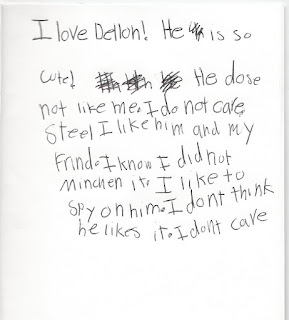 I love Dellon! He is so
cute! He dose
not like me. I do not care
Steel I like him and my
Frind. I know I did not
Minchen it. I like to
Spy on him. I dont think
he likes it. I dont care